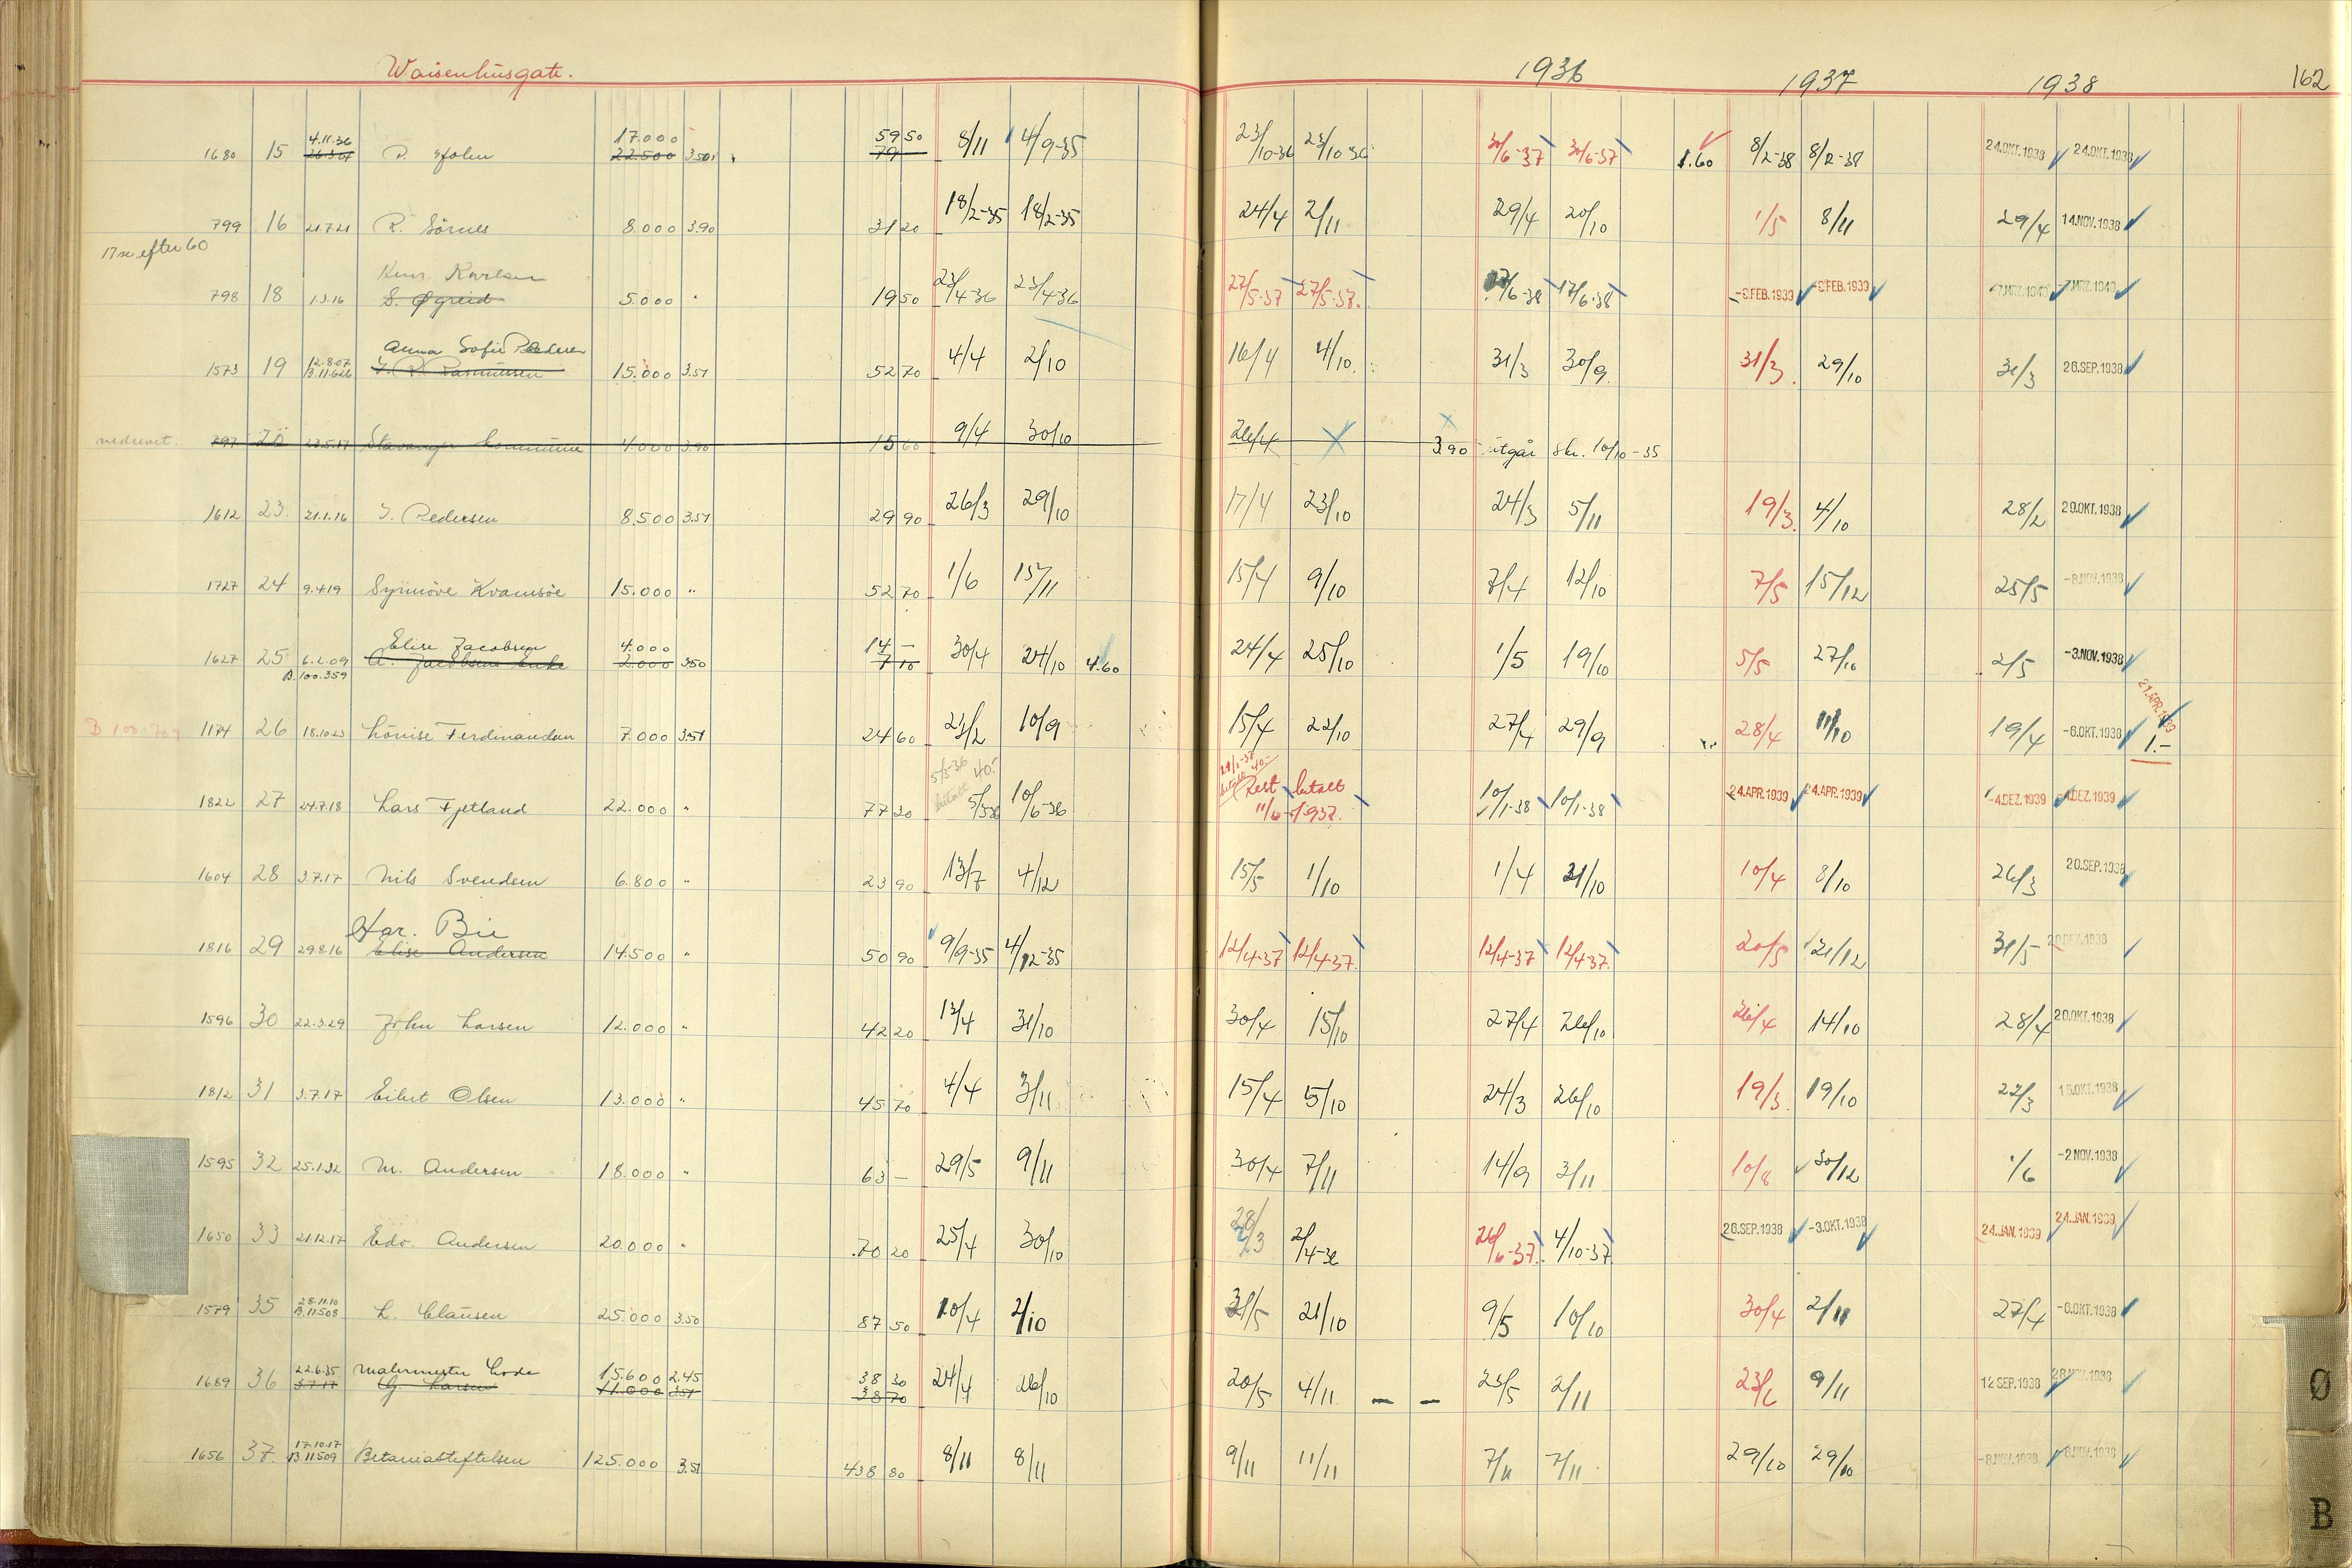 Waisenhusgate. 1936 1937 1938 162
4.11.36 17.000 59 50
1680 15 P. 22.500 3.50 79 8/11 4/9-35 23/10-36 23/10-36 30/6-37 30/6-37 1.60 8/2-38 8/2-38 24.OKT.1938 24.OKT.1938
799 16 21.7.21 R. Sörnes 8.000 3.90 31 20 18/2-35 18/2-35 24/4 2/11 29/4 20/10 1/5 8/11 29/4 14.NOV.1938
17 se efter 60
Karlsen
798 18 1.3.16 S. Øgreid 5.000 " 19 50 23/4-36 23/4-36 27/5-37 27/5-37. 17/6-38 17/6-38 -9.FEB.1939 -9.FEB.1939 -7.MRZ.1940 -7.MRZ.1940
Anna Sofie Pedersen
12.8.07
1573 19 B.11.626 Rasmussen 15.000 3.51 52 70 4/4 2/10 16/4 4/10 31/3 30/9 31/3 29/10 31/3 26.SEP.1938
nedrevet. 797 20 23.5.17 Stavanger kommune 4.000 3.90 15 60 9/4 30/10 26/4 X 3.90 utgår skr. 10/10-35
1612 23. 21.1.16 J. Pedersen 8.500 3.51 29 90 26/3 29/10 17/4 23/10 24/3 5/11 19/3 4/10 28/2 20.OKT.1938
1727 24 9.4.19 Synnöve Kvamsöe 15.000 " 52 70 1/6 15/11 15/4 9/10 7/4 12/10 7/5 15/12 25/5 -8.NOV.1938
Elise Jacobsen 4.000 14 -
1627 25 6.2.09 A. Jacobsens Enke 2.000 3.50 7 10 30/4 24/10 4.60 24/4 25/10 1/5 19/10 5/5 27/10 2/5 -3.NOV.1938
B.100.359
21.APR.1939
B 100.707 1174 26 18.10.23 Louise Ferdinandsen 7.000 3.51 24 60 23/2 10/9 15/4 22/10 27/4 29/9 28/4 11/10 19/4 -6.OKT.1938 1.-
5/5-36 40.- 29/1-37 40.-
1822 27 24.7.18 Lars Fjetland 22.000 " 77 20 betalt 5/5-36 10/6-36 betalt Rest betalt 10/1-38 10/1-38 24.APR.1939 24.APR.1939 -4.DEZ.1939 -4.DEZ.1939
11/6-1937.
1604 28 3.7.17 Nils Svendsen 6.800 " 23 90 13/7 4/12 15/5 1/10 1/4 21/10 10/4 8/10 26/3 20.SEP.1938
Har. Bie
1816 29 29.8.16 Elise Andersen 14.500 " 50 90 9/9-35 4/12-35 12/4-37 12/4-37. 12/4-37 12/4-37. 20/5 21/12 31/5 20.DEZ.1938
1596 30 22.3.29 John Larsen 12.000 " 42 20 13/4 31/10 30/4 15/10 27/4 26/10 26/4 14/10 28/4 20.OKT.1938
1812 31 3.7.17 Eilert Olsen 13.000 " 45 70 4/4 3/11 15/4 5/10 24/3 26/10 19/3 19/10 22/3 15.OKT.1938
1595 32 25.1.32 M. Andersen 18.000 " 63 - 29/5 9/11 30/4 7/11 14/9 3/11 10/8 30/12 1/6 -2 NOV.1938
1650 33 21.12.17 Edv. Andersen 20.000 " 70 20 25/4 30/10 28/3 2/4-36 26/6-37. 4/10-37 26.SEP.1938 -3.OKT.1938 24.JAN.1939 24.JAN.1939
28.11.10
1579 35 B.11508 L. Clausen 25.000 3.50 87 50 20/4 2/10 31/5 21/10 9/5 10/10 30/4 2/11 27/4 -6.OKT.1938
22.6.35 Malermester Lode 15.600 2.45 38 30
1689 36 3.7.17 G. Larsen 11.000 3.51 38 70 24/4 26/10 20/5 4/11 - - 23/5 2/11 23/6 9/11 12 SEP.1938 28.NOV.1938
17.10.17
1656 37. B.11509 Betaniastiftelsen 125.000 3.51 438 80 8/11 8/11 9/11 11/11 7/11 7/11 29/10 29/10 -8.NOV.1938 -8.NOV.1938
Ø
B